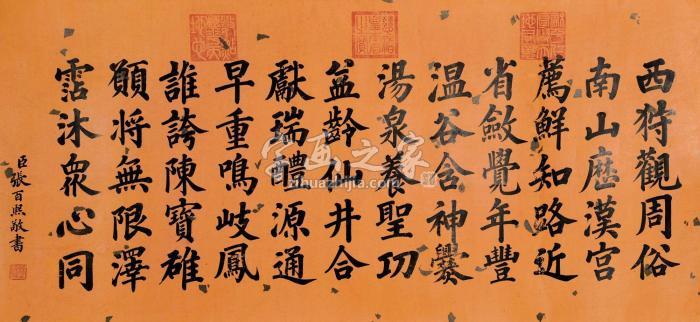 西狩觀周俗
南山歷漢宮
薦鮮知路近
省斂覺年豐
温谷含神爨
湯泉養聖功
益齡仙井合
獻瑞醴源通
早重鳴岐鳳
誰誇陳寶碓
願將無限澤
霑沐眾心同
臣張百熙敬書
字画之家
zihuazhijia.com